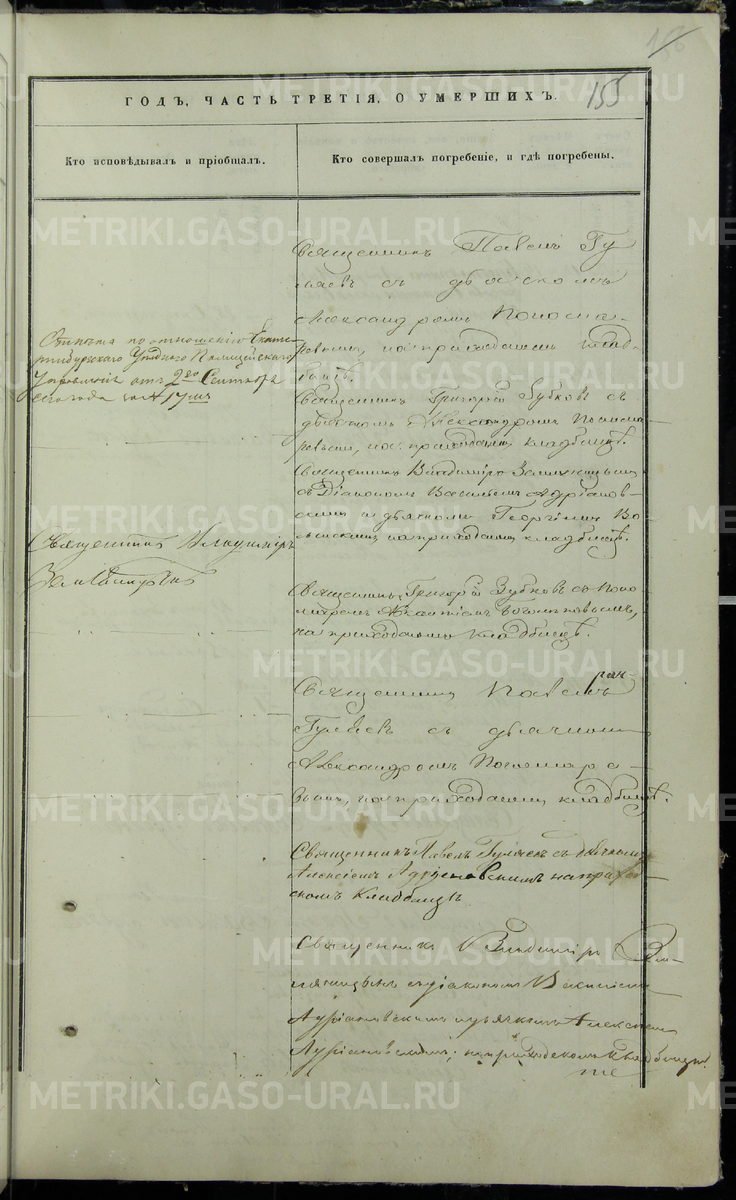 155
ГОДЪ, ЧАСТЬ ТРЕТІЯ, О УМЕРШИХЪ.
Кто исповѣдывалъ и пріобщалъ.
Кто совершалъ погребеніе, и гдѣ погребены.
по отношенію Екате-
ринбургскаго Уѣзднаго Полицейскаго
Управленія отъ 2го Сентября
сего года за № 17
Священникъ Владимиръ
Священникъ Павелъ Гу
ляевъ съ дьячкомъ
Александромъ Понома-
ревымъ, на приходскомъ клад-
бищѣ.
Священникъ Григорій Зубковъ съ
дьячкомъ Александромъ Понома-
ревымъ, на приходскомъ кладбищѣ.
Священникъ Владиміръ
съ Діакономъ Васильемъ Адріанов-
скимъ и дьячкомъ Георгіемъ
на приходскомъ кладбищѣ.
Священникъ Григорій Зубковъ съ Поно-
маремъ
на приходскомъ кладбищѣ.
Священникъ Павелъ
Гуляевъ съ дьячкомъ
Александромъ Пономаре-
вымъ, на приходскомъ кладбищѣ.
Священникъ Павелъ Гуляевъ съ дьячкомъ
Алексіемъ Адріановскимъ на приход-
скомъ кладбищѣ
Священникъ Владиміръ
съ діакономъ Василіемъ
Адріановскимъ и дьячкомъ Алексіемъ
Адріановскимъ, на приходскомъ кладбищѣ
METRIKI.GASO-URAL.RU